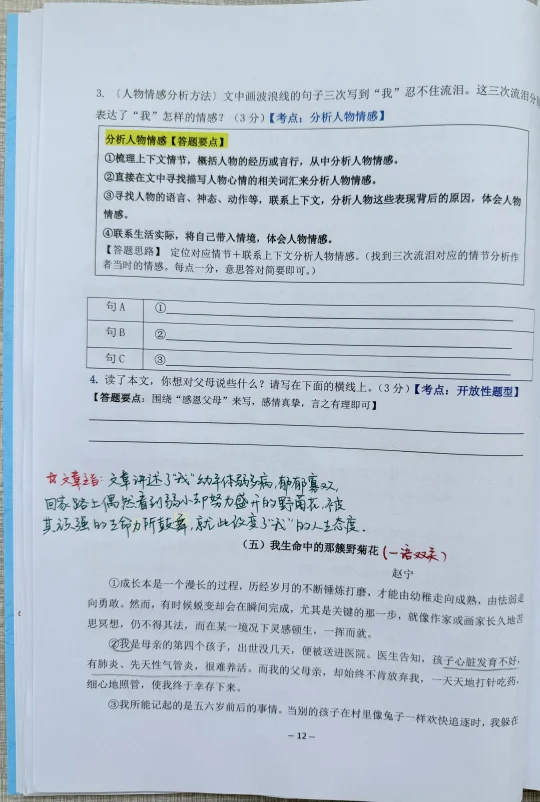 3.〔人物情感分析方法〕文中画波浪线的句子三次写到“我”忍不住流泪。这三次流泪分别
表达了“我”怎样的情感？（3 分）【考点：分析人物情感】
分析人物情感【答题要点】
①梳理上下文情节，概括人物的经历或言行，从中分析人物情感。
②直接在文中寻找描写人物心情的相关词汇来分析人物情感。
③寻找人物的语言、神态、动作等，联系上下文，分析人物这些表现背后的原因，体会人物
情感。
④联系生活实际，将自己带入情境，体会人物情感。
【答题思路】 定位对应情节＋联系上下文分析人物情感。（找到三次流泪对应的情节分析作
者当时的情感。每点一分，意思答对简要即可。）
句 A ①
句 B ②
句 C ③
4. 读了本文，你想对父母说些什么？请写在下面的横线上。（3 分）【考点：开放性题型】
【答题要点：围绕“感恩父母”来写，感情真挚，言之有理即可】
☆文章主旨：文章讲述了“我”幼年体弱多病，郁郁寡欢，
回家路上偶然看到弱小却努力盛开的野菊花，被
其顽强的生命力所鼓舞，就此改变了“我”的人生态度．
（五）我生命中的那簇野菊花（一语双关）
赵宁
①成长本是一个漫长的过程，历经岁月的不断锤炼打磨，才能由幼稚走向成熟，由怯弱走
向勇敢。然而，有时候蜕变却会在瞬间完成，尤其是关键的那一步，就像作家或画家长久地苦
思冥想，仍不得其法，而在某一境况下灵感顿生，一挥而就。
②我是母亲的第四个孩子，出世没几天，便被送进医院。医生告知，孩子心脏发育不好，
有肺炎、先天性气管炎，很难养活。而我的父母亲，却始终不肯放弃我，一天天地打针吃药，
细心地照管，使我终于幸存下来。
③我所能记起的是五六岁前后的事情。当别的孩子在村里像兔子一样欢快追逐时，我躲在
－ 12 －